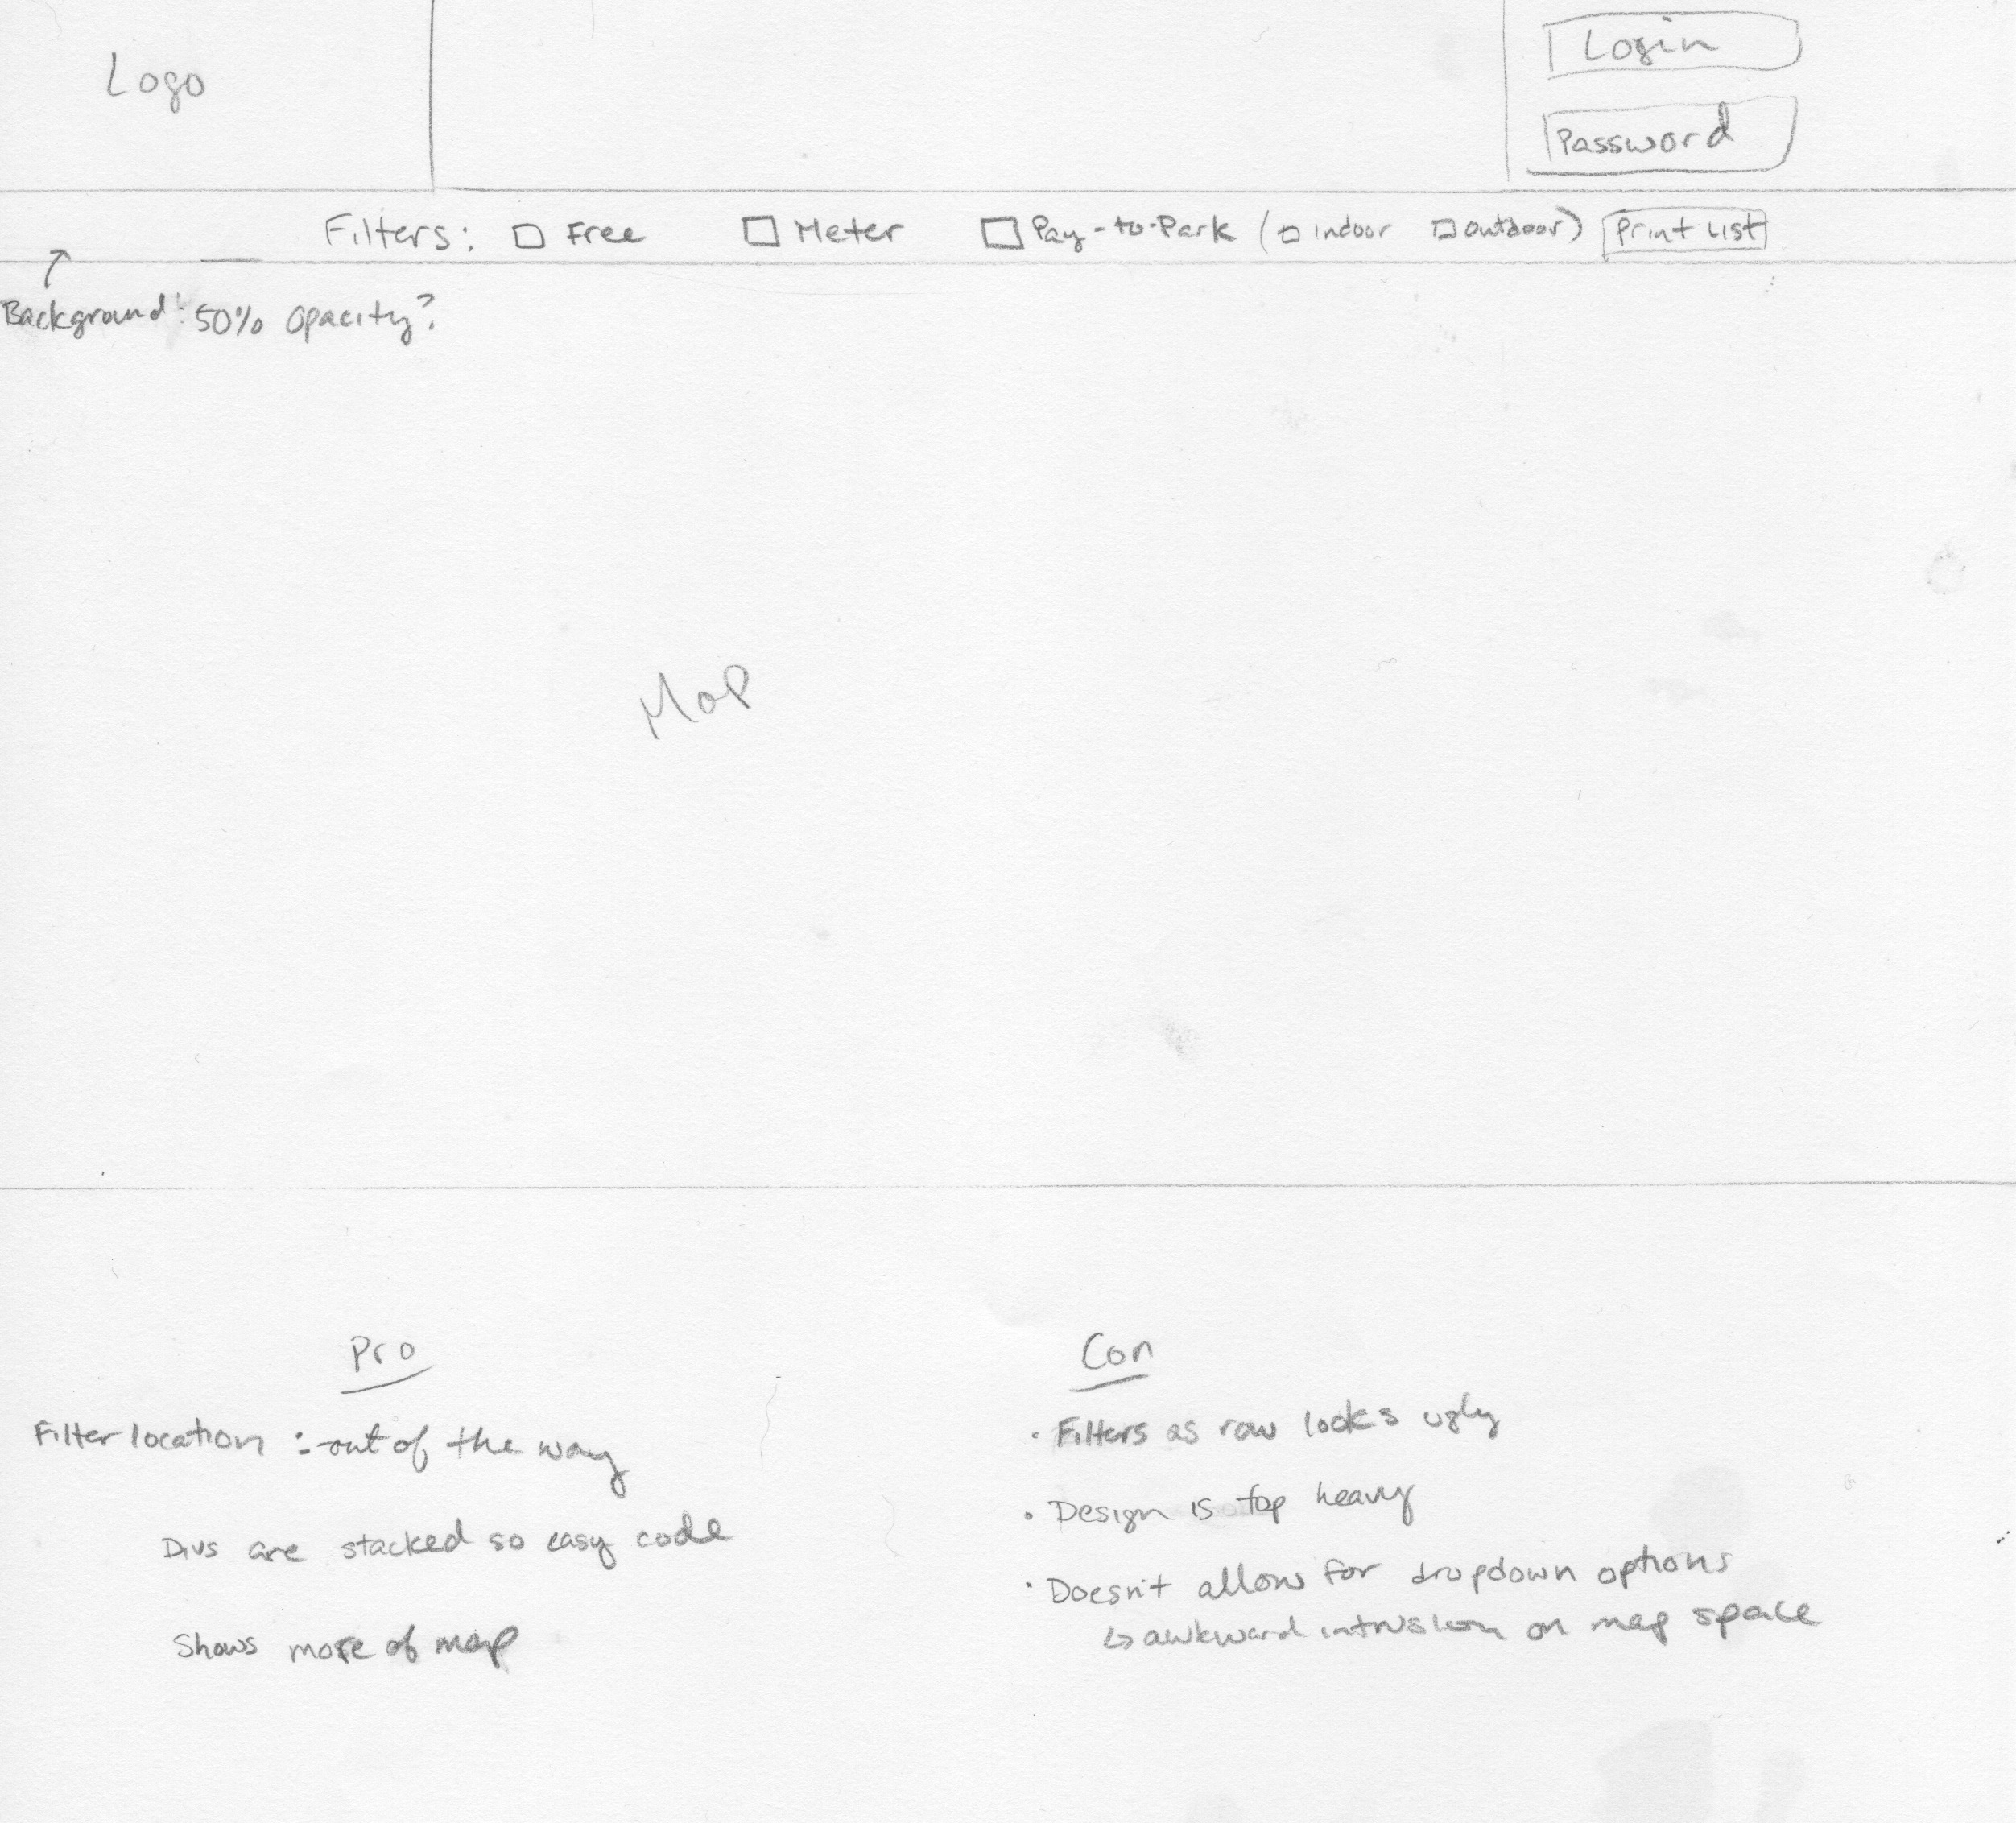 Logo
Login
Password
Filters: Free Meter Pay-to-Park (Indoor Outdoor) Print List
Background: 50% opacity?
Map
Pro
Con
Filter location: out of the way
Divs are stacked so easy code
Shows more of map
· Filters as row looks ugly
· Design is top heavy
· Doesn't allow for dropdown options
↳ awkward intrusion on map space